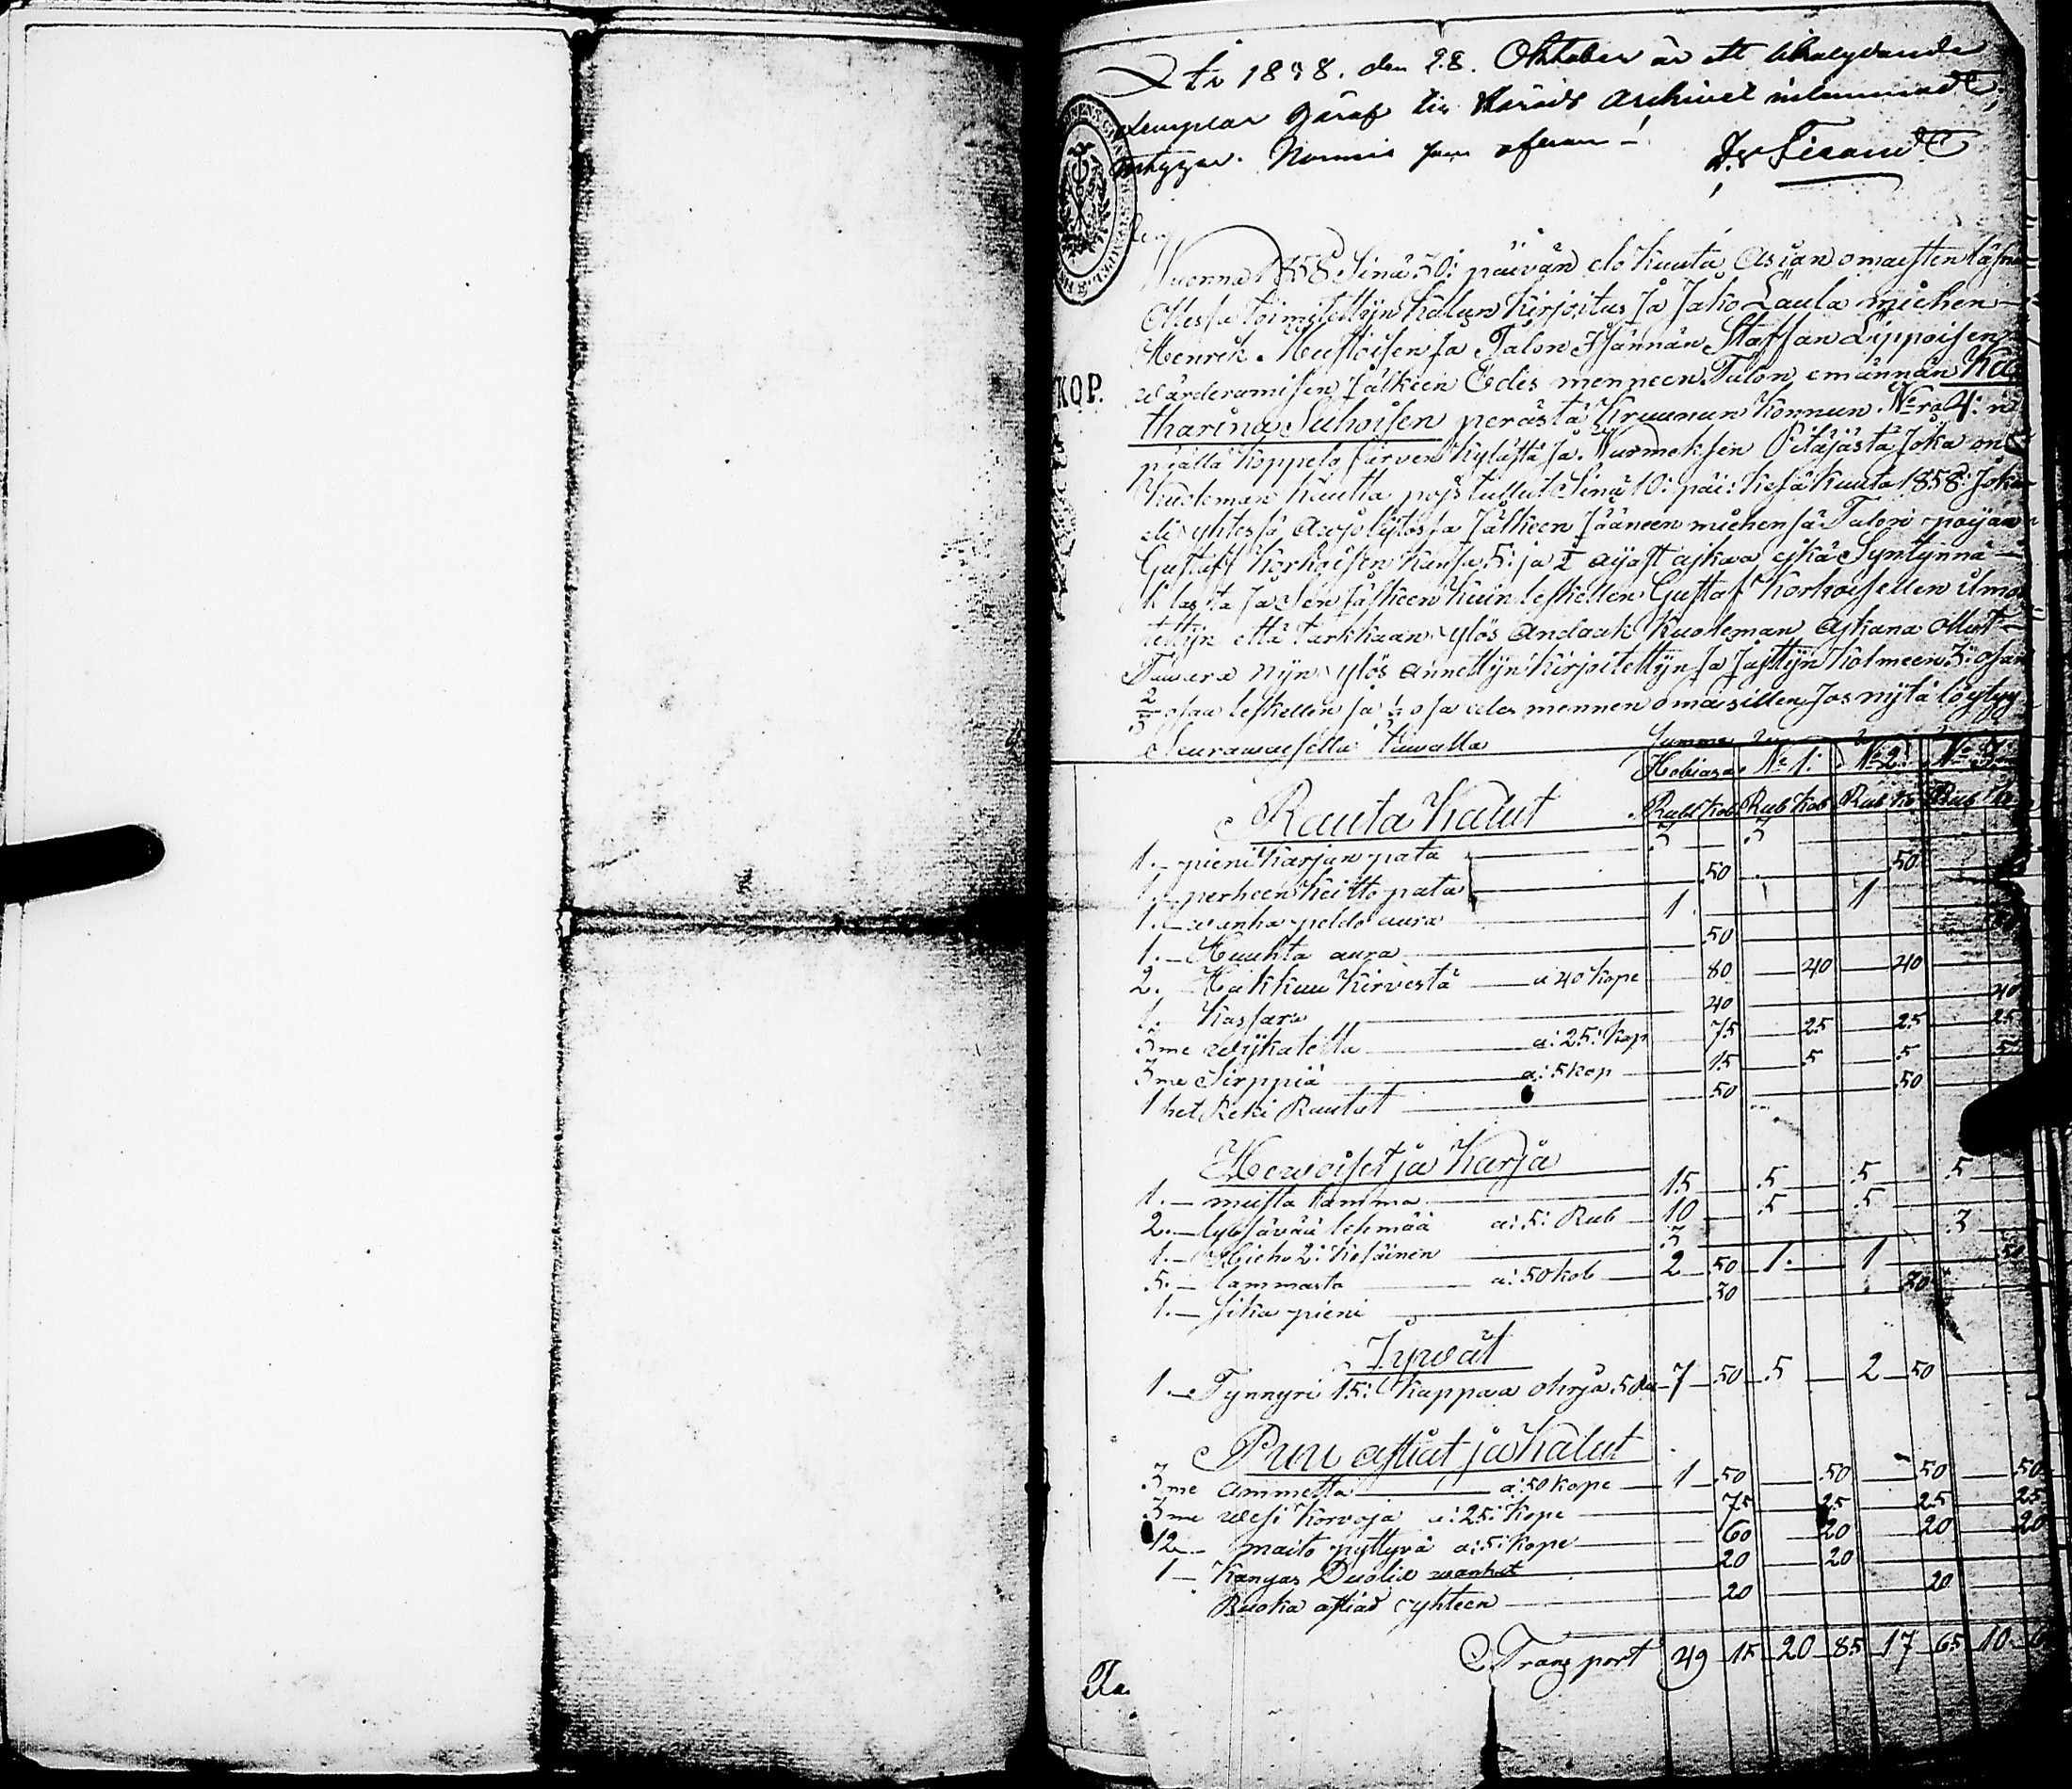 1858. den 28. Oktober är ett likalydande
exemplar häraf till Härads Archivet inlemnadt,
intygar.
KOP.
Wuonna 1858 Sinä 30: päivän elo kuuta, Asian omaisten läsnä
Ollessa toimitettijn Kalun Kirjoitus Ja Jako Laula miehen
Henrik Mustoisen Ja Talon Isännän Staffan Lippoisen
wärderamisen Jälkeen Edes menneen Talon emännän Ka
tharina Suhoisen perästä Kruunun Konnun Nro 4: n
piällä Koppelo Järven Kylästä Ja Nurmeksen Pitäjästä Joka on
Kuoleman Kautta pojs tullut Sinä 10: päi: Kesä Kuuta 1858: Joka
eli yhtessä Avjo Jälkeen Jääneen miehensä Talon pojan
Gustaff Korhoisen Kansa 5: ja ajkaa ejkä Syntynnä
Ja Sen Jälkeen Kuin leskellen Gustaf Korhoisellen ilmo
tettijn että tarkkaan ylös Andaak Kuoleman Ajkana Ollut
Tawara nijn ylös annettijn Kirjoitettijn Ja Jajttijn Kolmeen 3: osan
2/3 osaa leskellen ja 1/3 osa edes mennen omaisillen Jos nijtä löytyy
Seurawaisella tawalla Summa
Hobiasa No 1: No 2: No 3
Rauta Kalut Rubl Kob Rub Kob Rub Ko Rub
1. pieni Karjan pata 3 3
1. perheen Keitto pata 50 50
1. wanha peldo aura 1 1
1. Kuuhta aura 50
2. Hakkuu Kirvestä a 40 Kope 80 40 40
1. Kassara 40 40
3me wijkatetta a: 25: Kop 75 25 25 25
3me Sirppiä a: 5 kop 15 5 5 5
1 het Reki Rautat 50 50
Hewoiset ja Karja
1. musta tamma 15 5 5 5
2. lybsävää lehmää a: 5: Rub 10 5 5
1. Hieho 2: Kesäinen 3 3
5. lammasta a: 50 kob 2 50 1 1 50
1. Sika pieni 30 30
Jywät
1. Tynnyri 15: Kappaa ohrja 5 Ru 7 50 5 2 50
Puu astiat ja Kalut
3me ammetta a: 50 kope 1 50 50 50 50
3me wesi Korvoja a: 25: Kope 75 25 25 25
12 maito pyttyvä a: 5: Kope 60 20 20 20
1 Kangas wanhat 20 20
Ruoka astiad yhteen 20 20
Transport 49 15 20 85 17 65 10